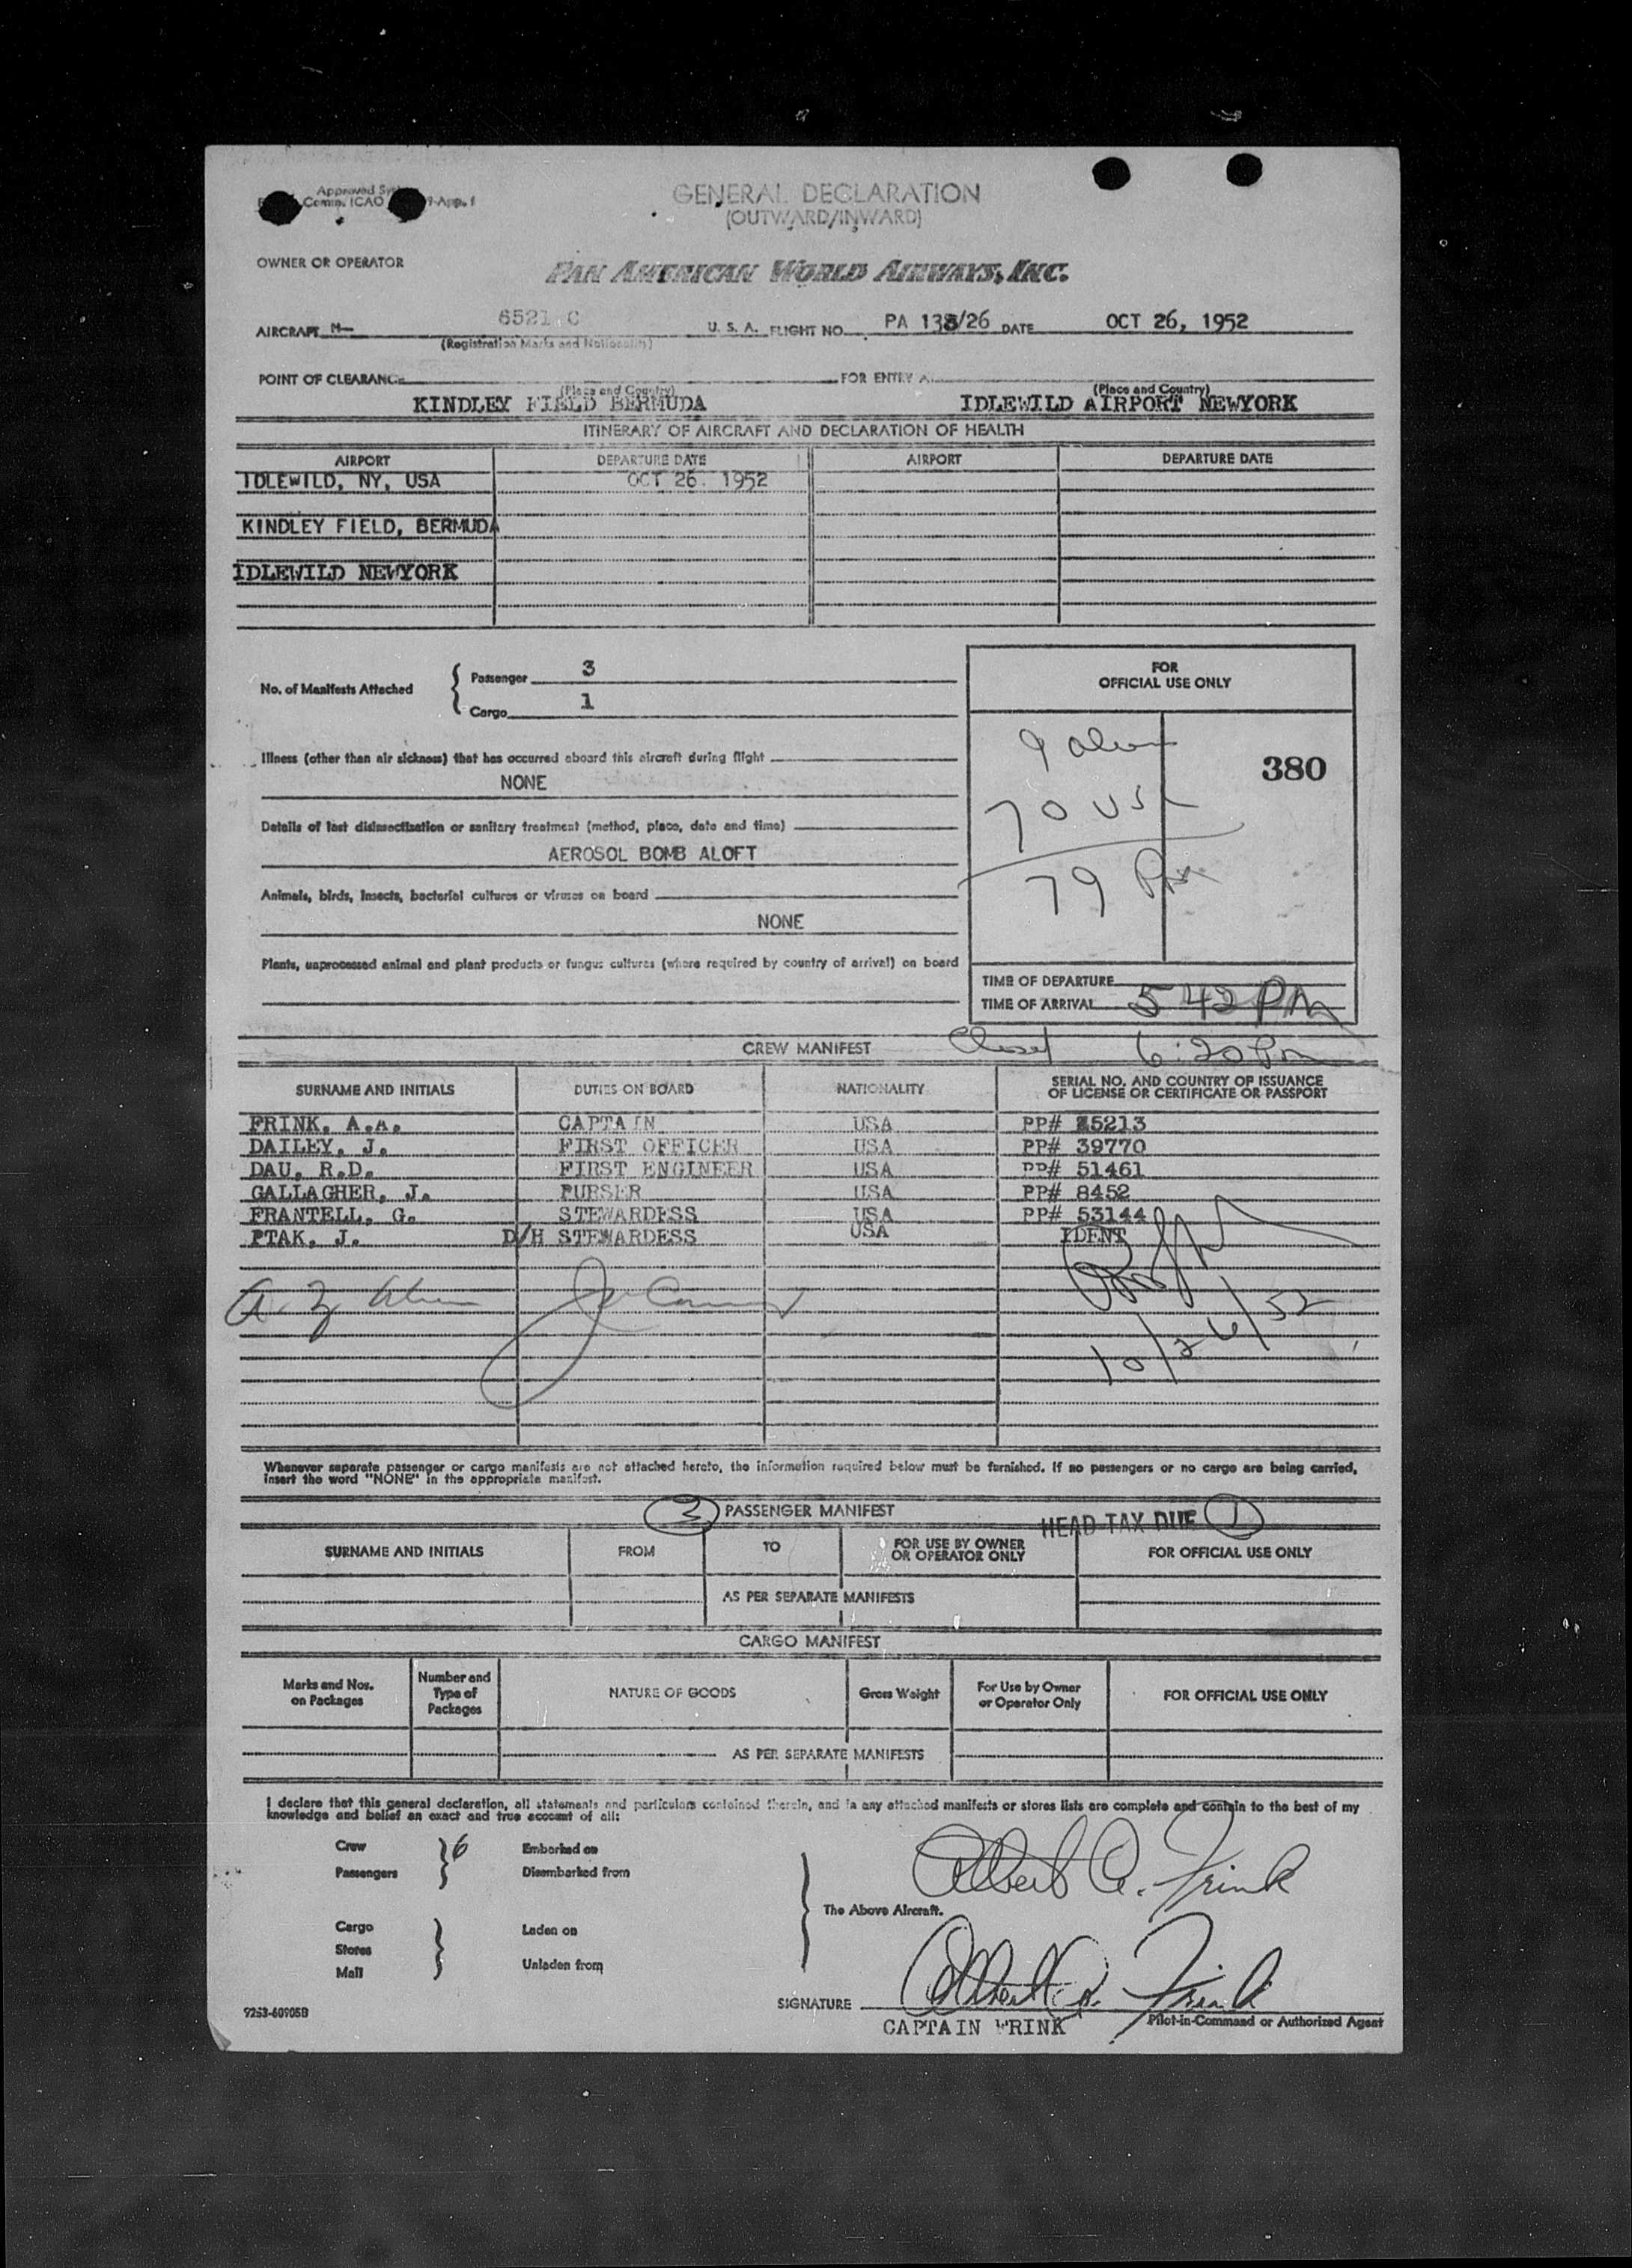 GENERAL DECLARATION
(OUTWARD/INWARD)
Approved
Comm. ICAO -App. 1
OWNER OR OPERATOR
PAN AMERICAN WORLD AIRWAYS, INC.
AIRCRAFT N- 6521 C U. S. A. FLIGHT NO. PA 138/26 DATE OCT 26, 1952
(Registration Marks and Nationality)
POINT OF CLEARANCE FOR ENTRY A
(Place and Country) (Place and Country)
KINDLEY FIELD BERMUDA IDLEWILD AIRPORT NEWYORK
ITINERARY OF AIRCRAFT AND DECLARATION OF HEALTH
AIRPORT DEPARTURE DATE AIRPORT DEPARTURE DATE
IDLEWILD, NY, USA OCT 26. 1952
KINDLEY FIELD, BERMUDA
IDLEWILD NEWYORK
No. of Manifests Attached
Passenger 3
Cargo 1
Illness (other than air sickness) that has occurred aboard this aircraft during flight
NONE
Details of last disinsectization or sanitary treatment (method, place, date and time)
AEROSOL BOMB ALOFT
Animals, birds, insects, bacterial cultures or viruses on board
NONE
Plants, unprocessed animal and plant products or fungus cultures (where required by country of arrival) on board
FOR
OFFICIAL USE ONLY
9 alien
380
70 USC
79 Pax
TIME OF DEPARTURE
TIME OF ARRIVAL 5 42 PM
CREW MANIFEST Closed 6:20 Pm
SURNAME AND INITIALS DUTIES ON BOARD NATIONALITY SERIAL NO. AND COUNTRY OF ISSUANCE
OF LICENSE OR CERTIFICATE OR PASSPORT
FRINK. A.A. CAPTAIN USA PP# 5213
DAILEY, J. FIRST OFFICER USA PP# 39770
DAU, R.D. FIRST ENGINEER USA PP# 51461
GALLAGHER, J. PURSER USA PP# 8452
FRANTELL, G. STEWARDESS USA PP# 53144
PTAK, J. D/H STEWARDESS USA IDENT
10/26/52
Whenever separate passenger or cargo manifests are not attached hereto, the information required below must be furnished. If no passengers or no cargo are being carried,
insert the word "NONE" in the appropriate manifest.
3 PASSENGER MANIFEST HEAD TAX DUE 1
SURNAME AND INITIALS FROM TO FOR USE BY OWNER
OR OPERATOR ONLY FOR OFFICIAL USE ONLY
AS PER SEPARATE MANIFESTS
CARGO MANIFEST
Marks and Nos.
on Packages Number and
Type of
Packages NATURE OF GOODS Gross Weight For Use by Owner
or Operator Only FOR OFFICIAL USE ONLY
AS PER SEPARATE MANIFESTS
I declare that this general declaration, all statements and particulars contained therein, and in any attached manifests or stores lists are complete and contain to the best of my
knowledge and belief an exact and true account of all:
Crew 6 Embarked on
Passengers Disembarked from
Albert A. Frink
The Above Aircraft.
Cargo Laden on
Stores
Mail Unladen from
SIGNATURE Albert A. Frink
CAPTAIN FRINK Pilot-in-Command or Authorized Agent
9253-60905B